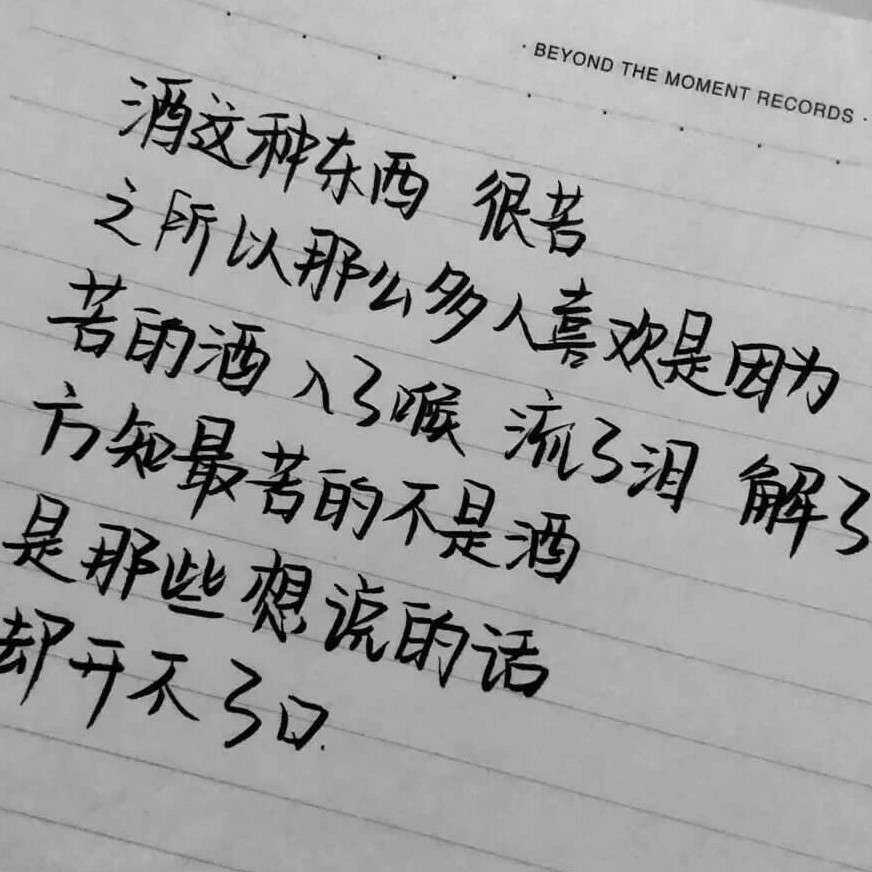 · BEYOND THE MOMENT RECORDS ·
酒这种东西 很苦
之所以那么多人喜欢是因为
苦的酒 入了喉 流了泪 解了
方知最苦的不是酒
是那些想说的话
却开不了口.